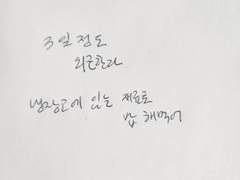 3일정도
외근한다
냉장고에 있는 재료로
밥 해먹어